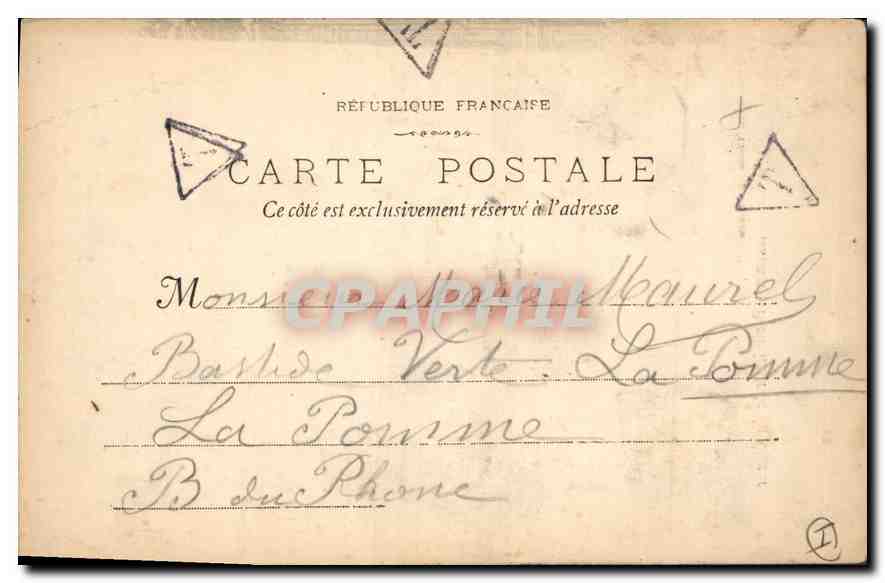 T
RÉPUBLIQUE FRANÇAISE
T
CARTE POSTALE
T
Ce côté est exclusivement réservé à l'adresse
CPAPHIL
Monsieur Maurel
Bastide Verte. La Pomme
La Pomme
B du Rhone
I